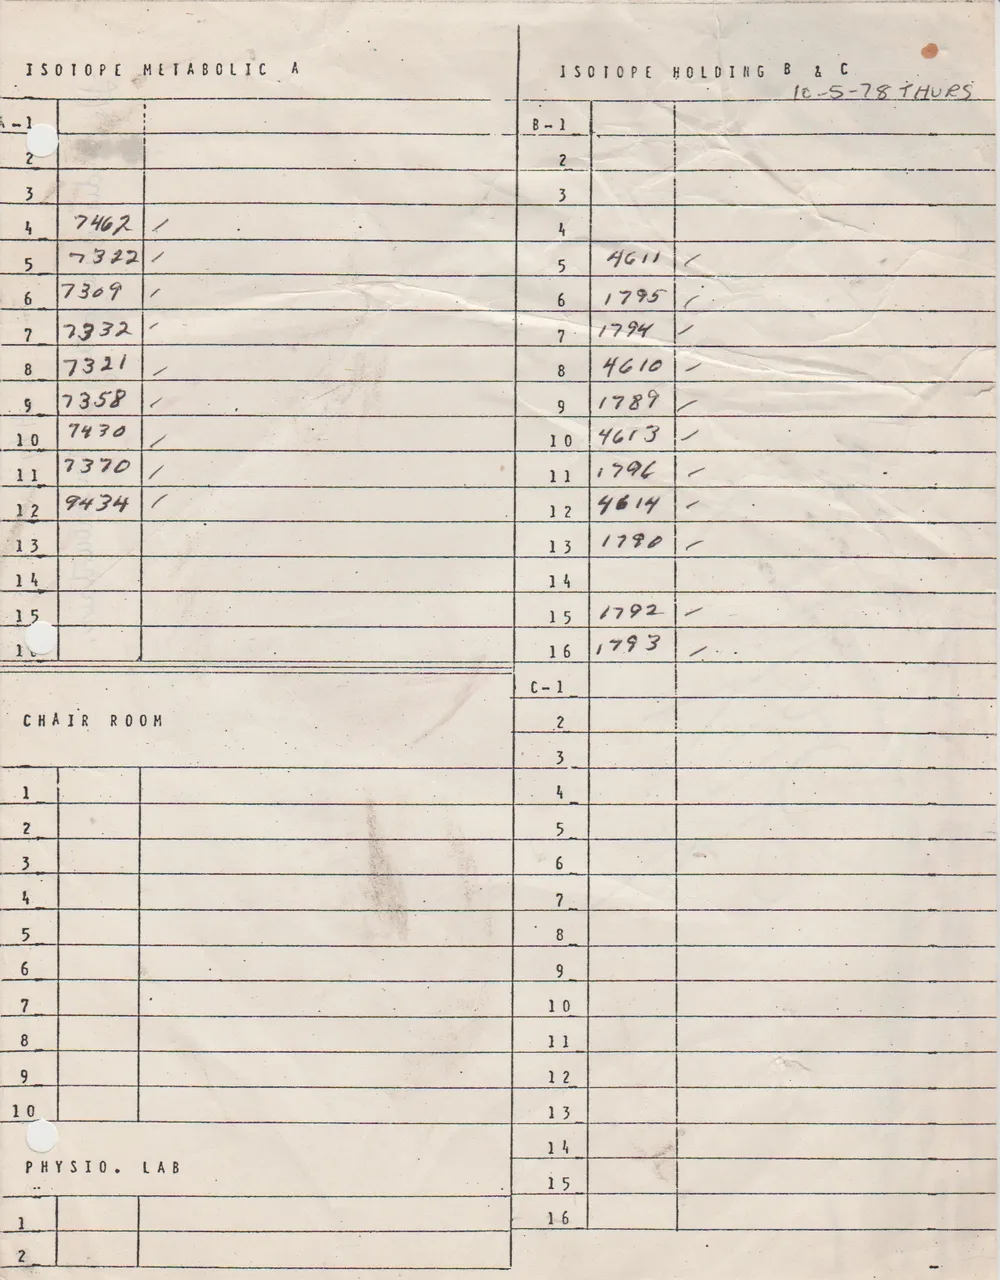 ISOTOPE METABOLIC A
A-1
2
3
4 7462 /
5 7322 /
6 7309 /
7 7332 /
8 7321 /
9 7358 /
10 7430 /
11 7370 /
12 9434 /
13
14
15
16
CHAIR ROOM
1
2
3
4
5
6
7
8
9
10
PHYSIO. LAB
1
2
ISOTOPE HOLDING B & C
10-5-78 THURS
B-1
2
3
4
5 4611 /
6 1795 /
7 1794 /
8 4610 /
9 1789 /
10 4613 /
11 1796 /
12 4614 /
13 1790 /
14
15 1792 /
16 1793 /
C-1
2
3
4
5
6
7
8
9
10
11
12
13
14
15
16